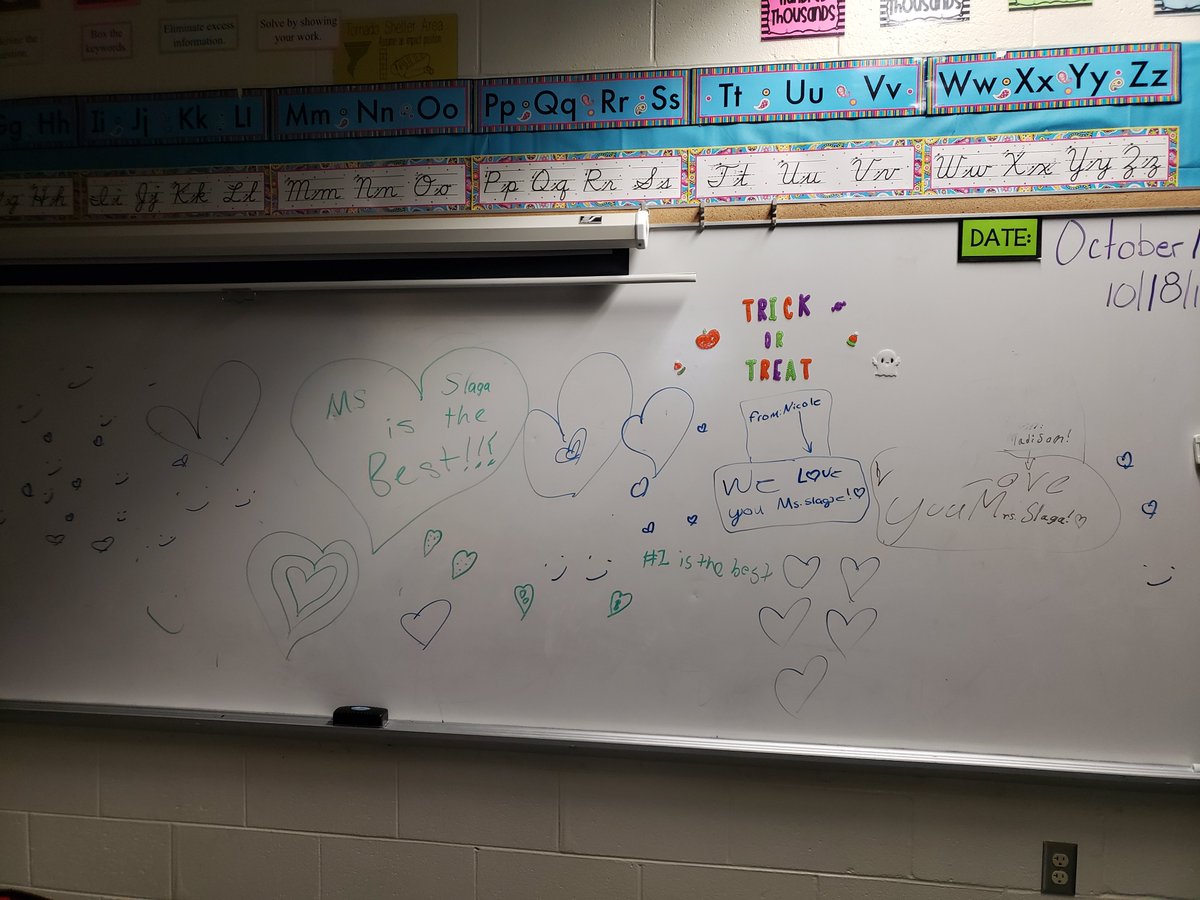 Box the
keywords.
Eliminate excess
information.
Solve by showing
your work.
Tornado Shelter Area
Assume an impact position
THOUSANDS
THOUSANDS
Gg Hh Ii Jj Kk Ll Mm Nn Oo Pp Qq Rr Ss Tt Uu Vv Ww Xx Yy Zz
Hh Ii Jj Kk Ll Mm Nn Oo Pp Qq Rr Ss Tt Uu Vv Ww Xx Yy Zz
DATE: October
10/18/1
TRICK
OR
TREAT
Ms Slaga
is the
Best!!!
From: Nicole
We LOVE
you Ms. slagae!
Madison!
Love
you Mrs. Slaga!
#1 is the best